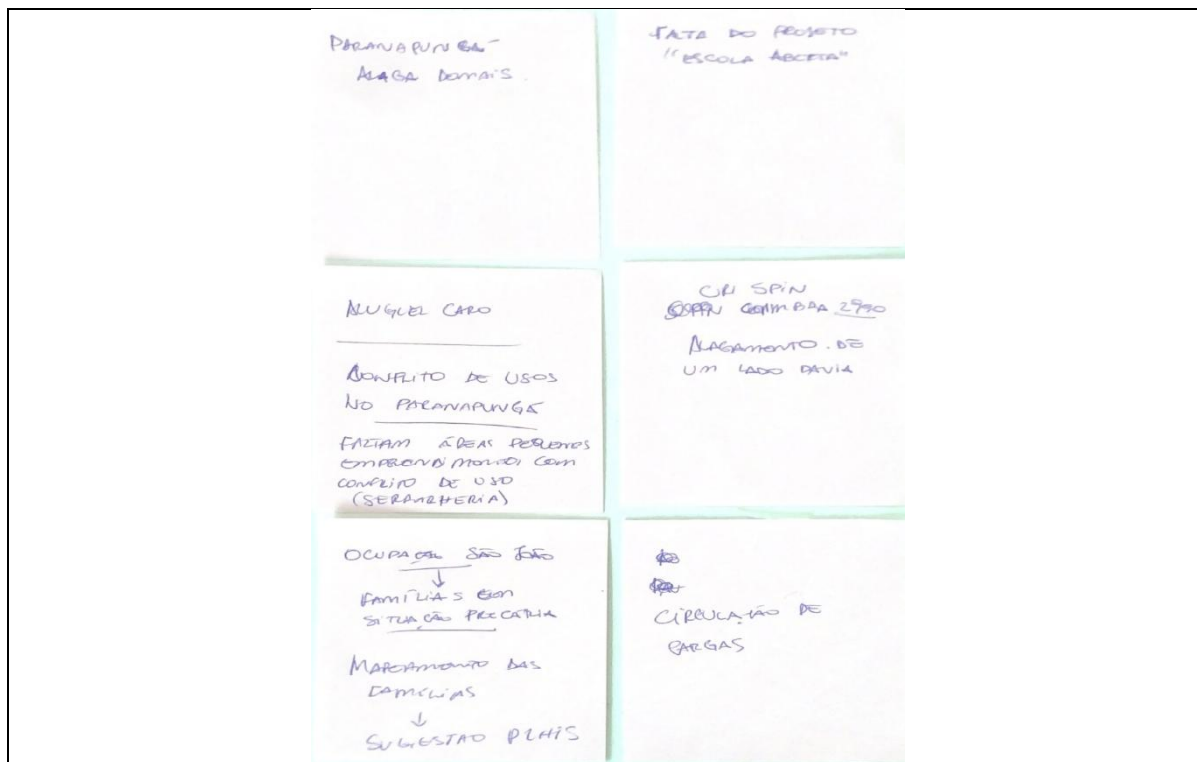 PARANAPUNGÁ
ALAGA DEMAIS.
FALTA DO PROJETO
"ESCOLA ABERTA"
ALUGUEL CARO
CONFLITO DE USOS
NO PARANAPUNGÁ
FALTAM ÁREAS PEQUENOS
EMPREENDIMENTOS COM
CONFLITO DE USO
(SERRALHERIA)
CRISPIN
COIMBRA 2990
ALAGAMENTO. DE
UM LADO DAVIA
OCUPAÇÃO SÃO JOÃO
↓
FAMÍLIAS EM
SITUAÇÃO PRECÁRIA
MAPEAMENTO DAS
FAMÍLIAS
↓
SUGESTÃO PLHIS
CIRCULAÇÃO DE
CARGAS